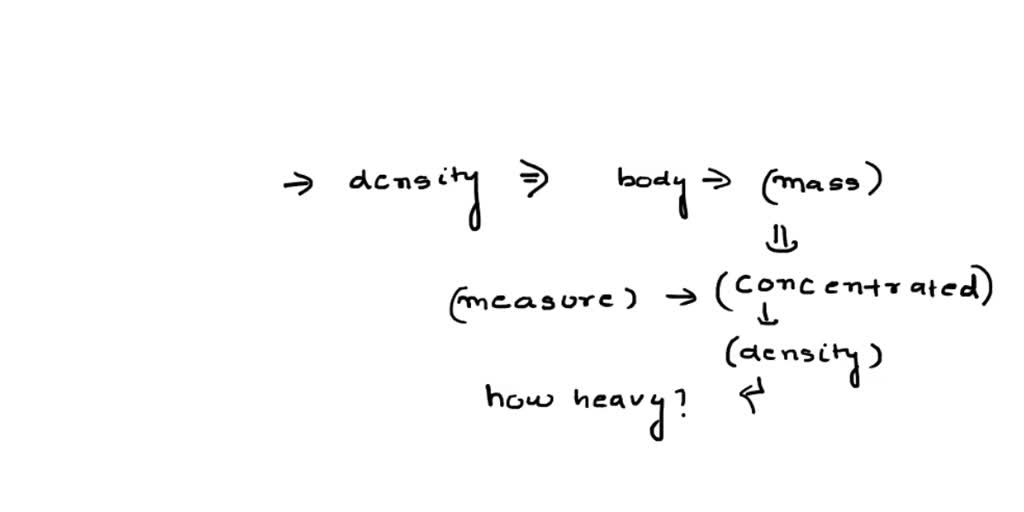 → density ⇒ body → (mass)
⇓
(measure) → (concentrated)
↓
(density)
how heavy? ↲